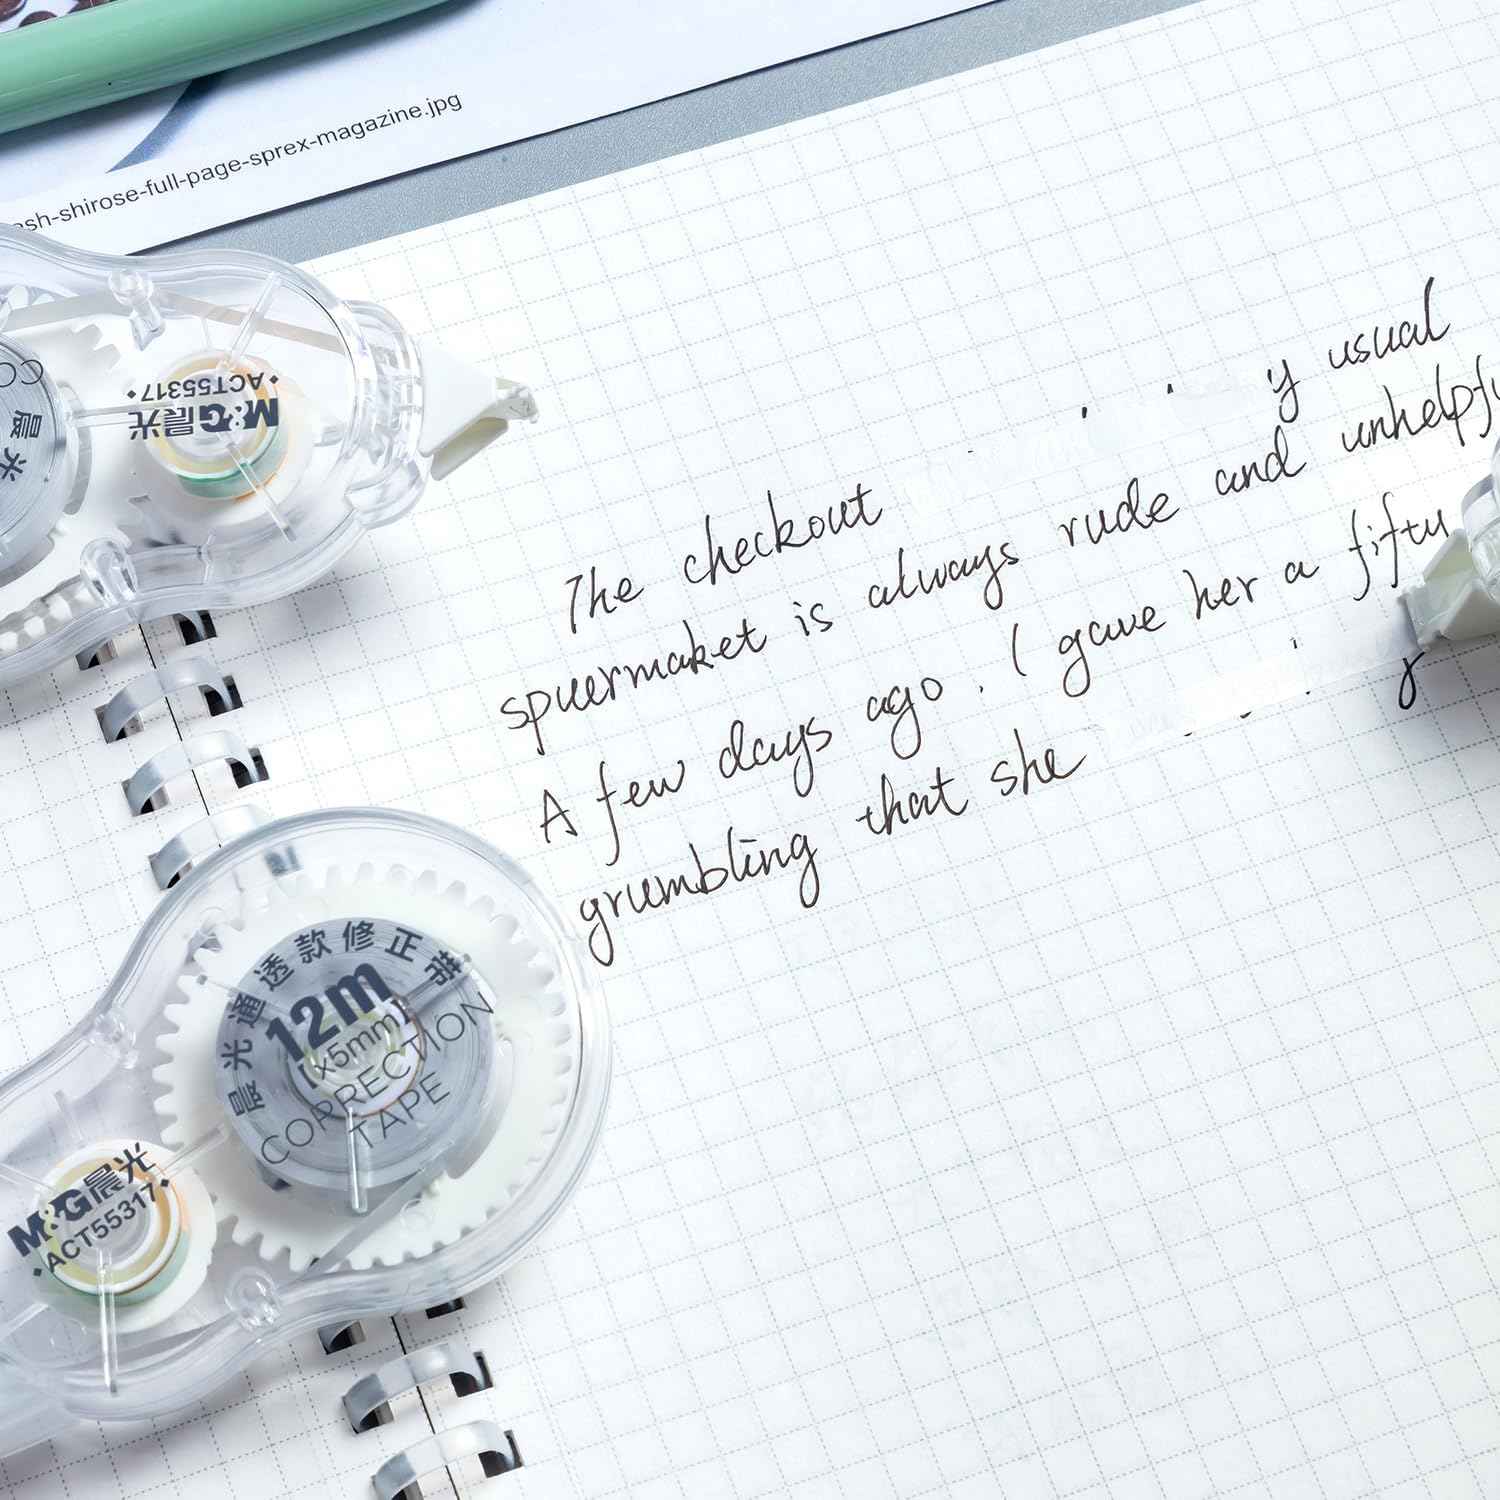 ash-shirose-full-page-sprex-magazine.jpg
ACT55317
M&G晨光
晨光
The checkout y usual
spuermaket is always rude and unhelpfu
A few days ago. I gave her a fifty
grumbling that she
晨光通透款修正带
12m
x5mm
CORRECTION
TAPE
M&G晨光
ACT55317